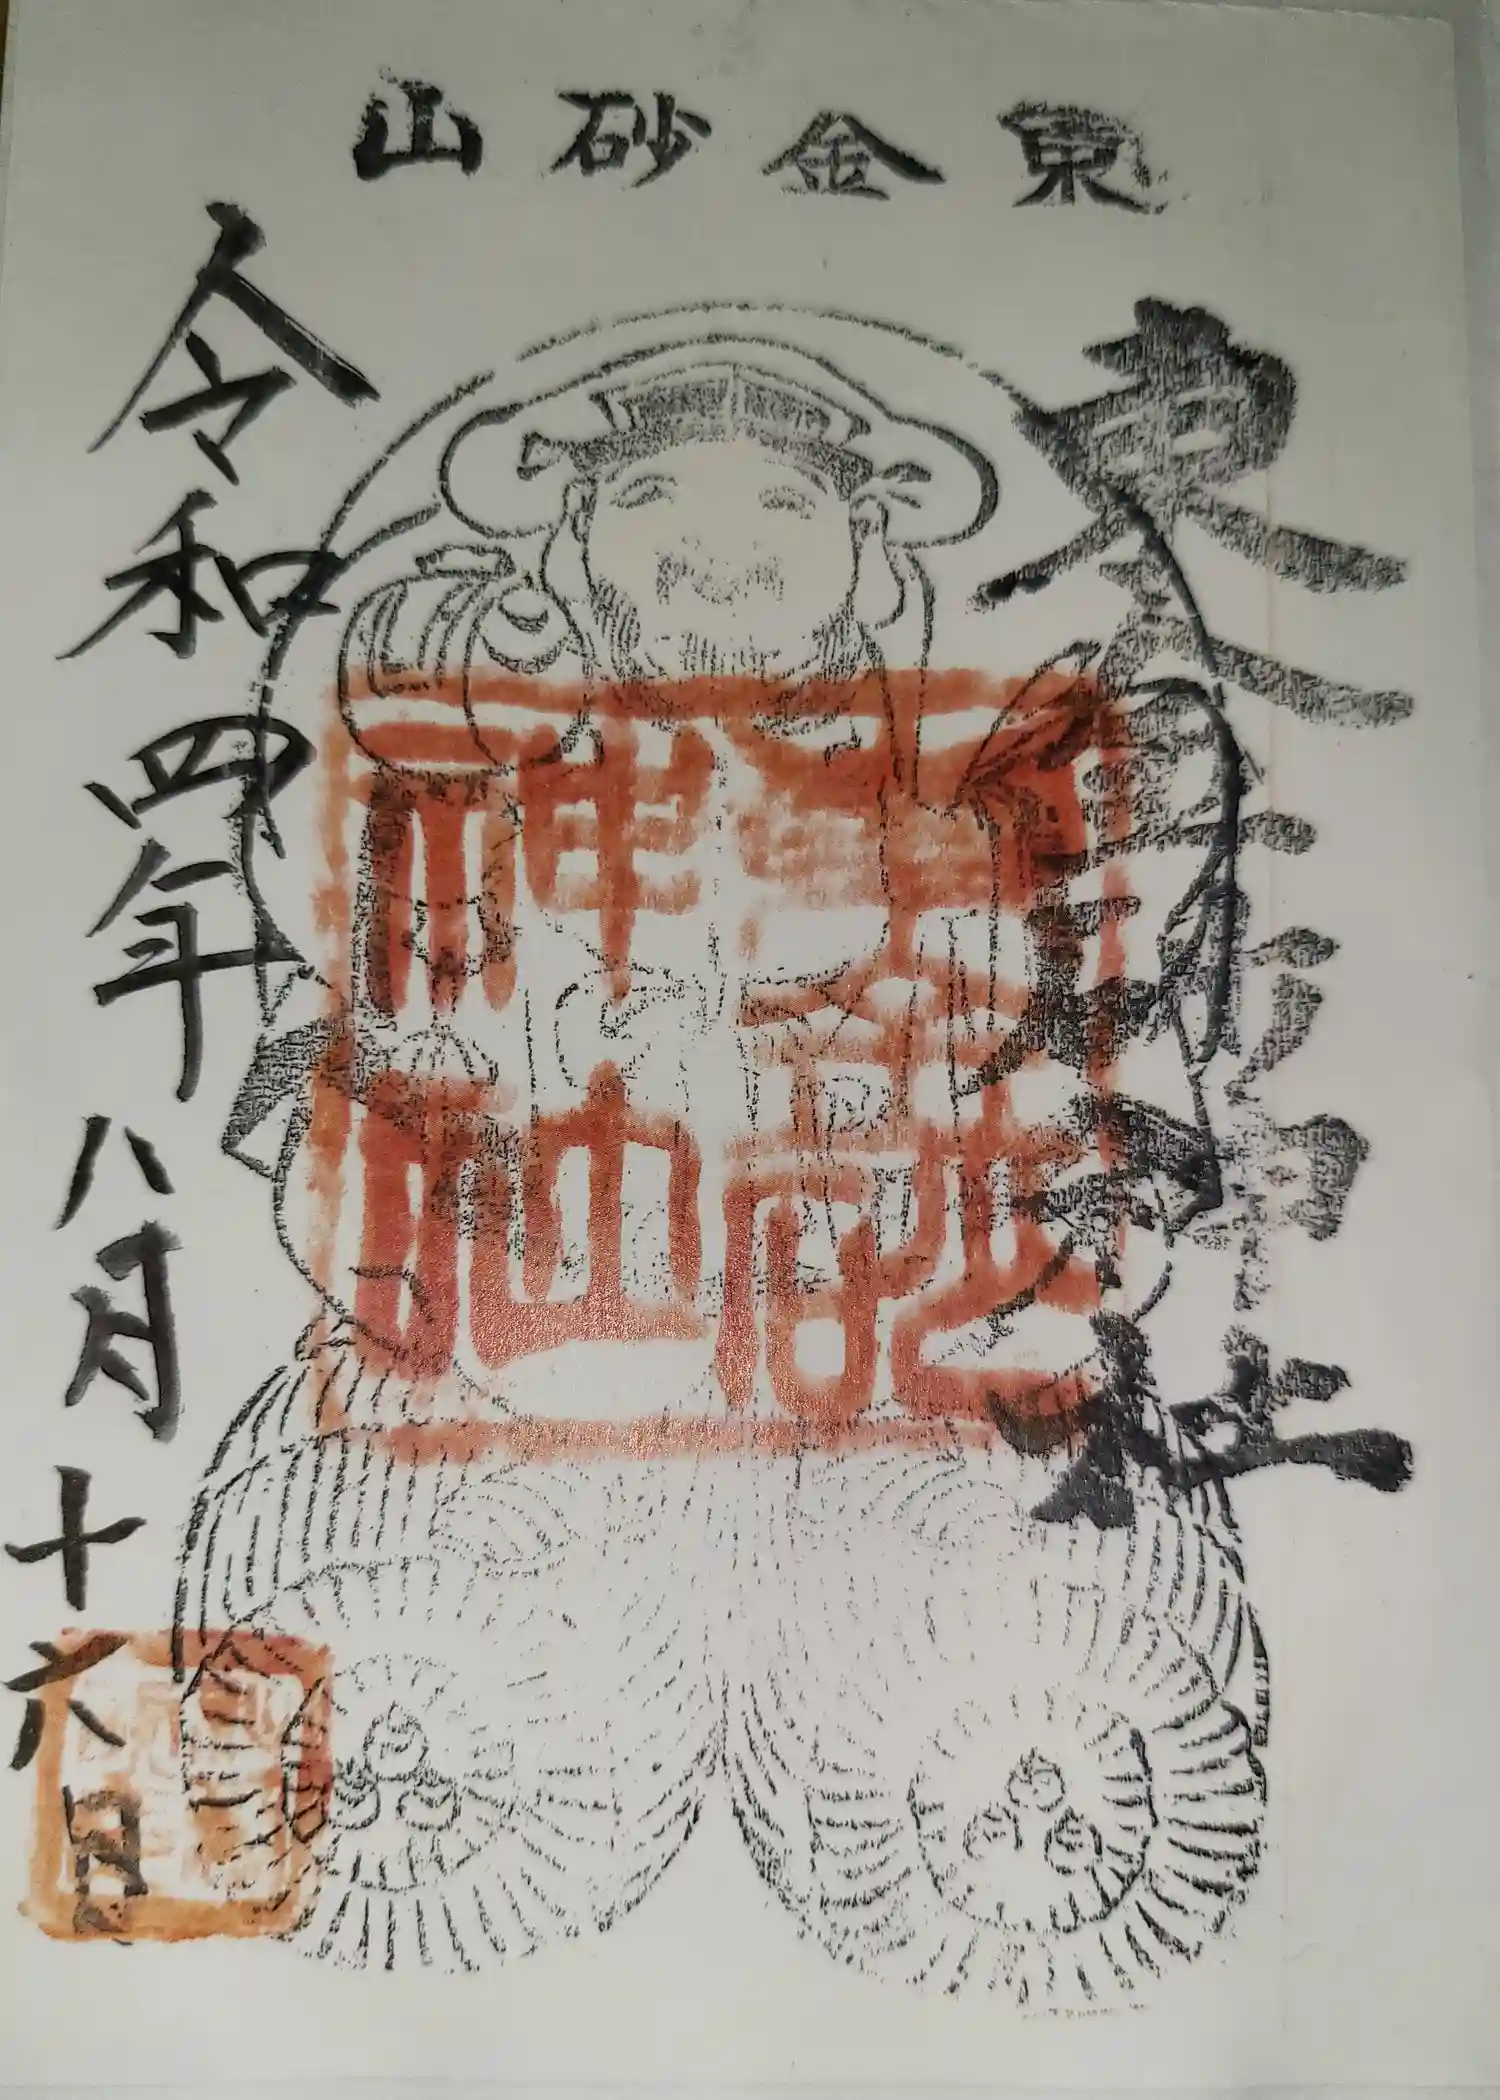 東金砂山
東金砂神社
令和四年八月十六日